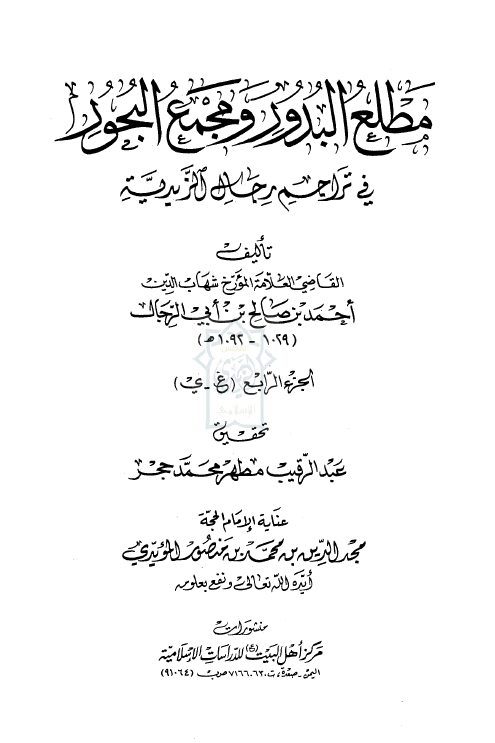 مَطْلَعُ البُدُورِ وَمَجْمَعُ البُحُورِ
في تراجم رجال الزيدية
تأليف
القاضي العلامة المؤرخ شهاب الدين
أحمد بن صالح بن أبي الرجال
(١٠٢٩ - ١٠٩٢ هـ)
الجزء الرابع (غ - ي)
تحقيق
عبد الرقيب مطهر محمد حجر
عناية الإمام الحجة
مجد الدين بن محمد بن منصور المؤيدي
أيده الله تعالى ونفع بعلومه
منشورات
مركز أهل البيت (ع) للدراسات الإسلامية
اليمن - صعدة، ت ٧١٦٦٠٦٣ ص.ب (٩١٠٦٤)